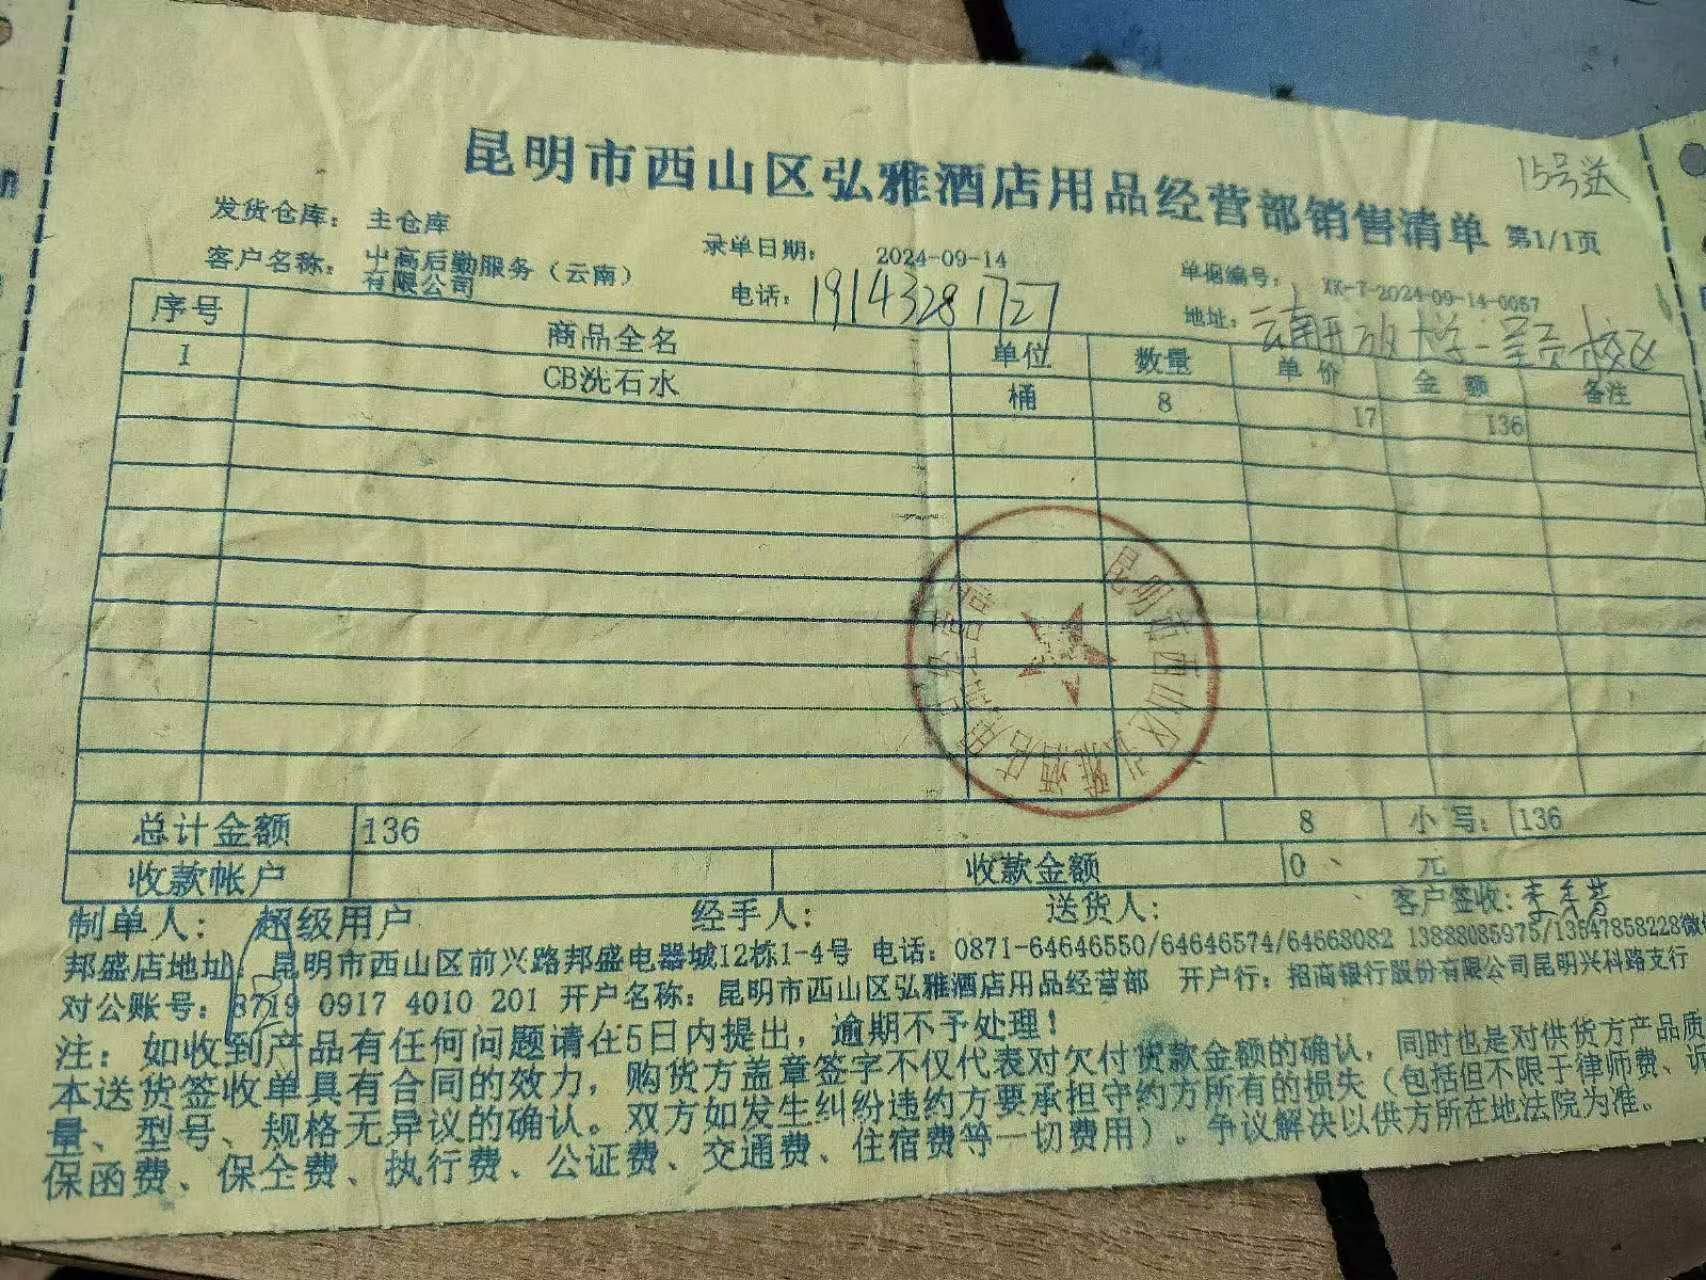 昆明市西山区弘雅酒店用品经营部销售清单 第1/1页
15号送
发货仓库: 主仓库
录单日期: 2024-09-14
单据编号: XK-T-2024-09-14-0057
客户名称: 中高后勤服务（云南）
有限公司
电话: 19143281727
地址: 云南开放大学-呈贡校区
序号 商品全名 单位 数量 单价 金额 备注
1 CB洗石水 桶 8 17 136
总计金额 136 8 小写: 136
收款帐户 收款金额 0、 元
制单人: 超级用户 经手人: 送货人: 客户签收:
邦盛店地址: 昆明市西山区前兴路邦盛电器城12栋1-4号 电话: 0871-64646550/64646574/64668082 13888085975/13647858228微
对公账号: 8719 0917 4010 201 开户名称: 昆明市西山区弘雅酒店用品经营部 开户行: 招商银行股份有限公司昆明兴科路支行
注: 如收到产品有任何问题请在5日内提出, 逾期不予处理!
本送货签收单具有合同的效力, 购货方盖章签字不仅代表对欠付货款金额的确认, 同时也是对供货方产品质
量、型号、规格无异议的确认。双方如发生纠纷违约方要承担守约方所有的损失（包括但不限于律师费、诉
保函费、保全费、执行费、公证费、交通费、住宿费等一切费用）。争议解决以供方所在地法院为准。
昆明市西山区弘雅酒店用品经营部